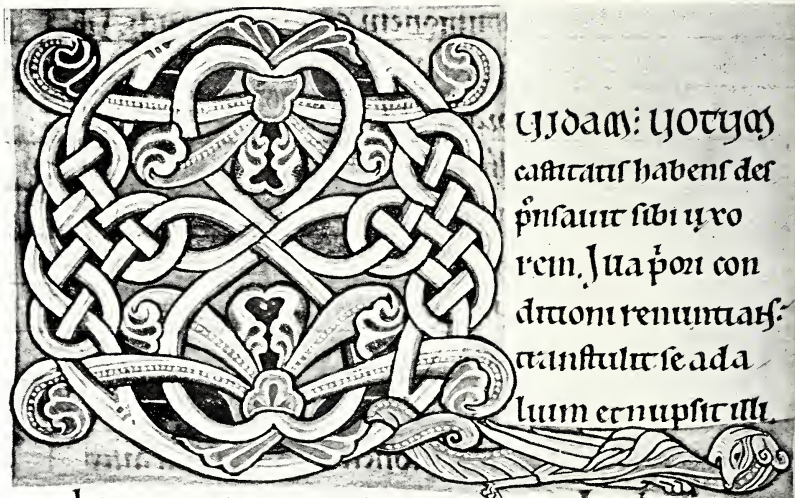 QUIDAM: UOTUM
castitatis habens des
pͦnsauit sibi uxo
rem. Illa pͥori con
ditioni renuntians:
transtulit se ad a
lium et nupsit illi.